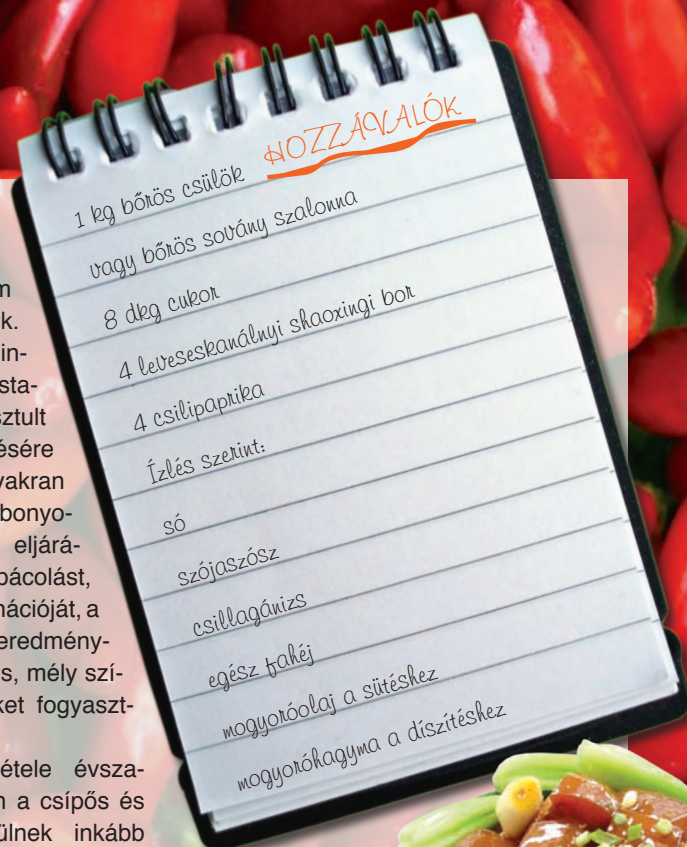 HOZZÁVALÓK
1 kg bőrös csülök
vagy bőrös sovány szalonna
8 dkg cukor
4 leveseskanálnyi shaoxingi bor
4 csilipaprika
Ízlés szerint:
só
szójaszósz
csillagánizs
egész fahéj
mogyoróolaj a sütéshez
mogyoróhagyma a díszítéshez
m
k.
in-
sta-
sztult
ésére
yakran
bonyo-
eljárá-
pácolást,
nációját, a
eredmény-
s, mély szí-
ket fogyaszt-
étele évsza-
n a csípős és
ülnek inkább